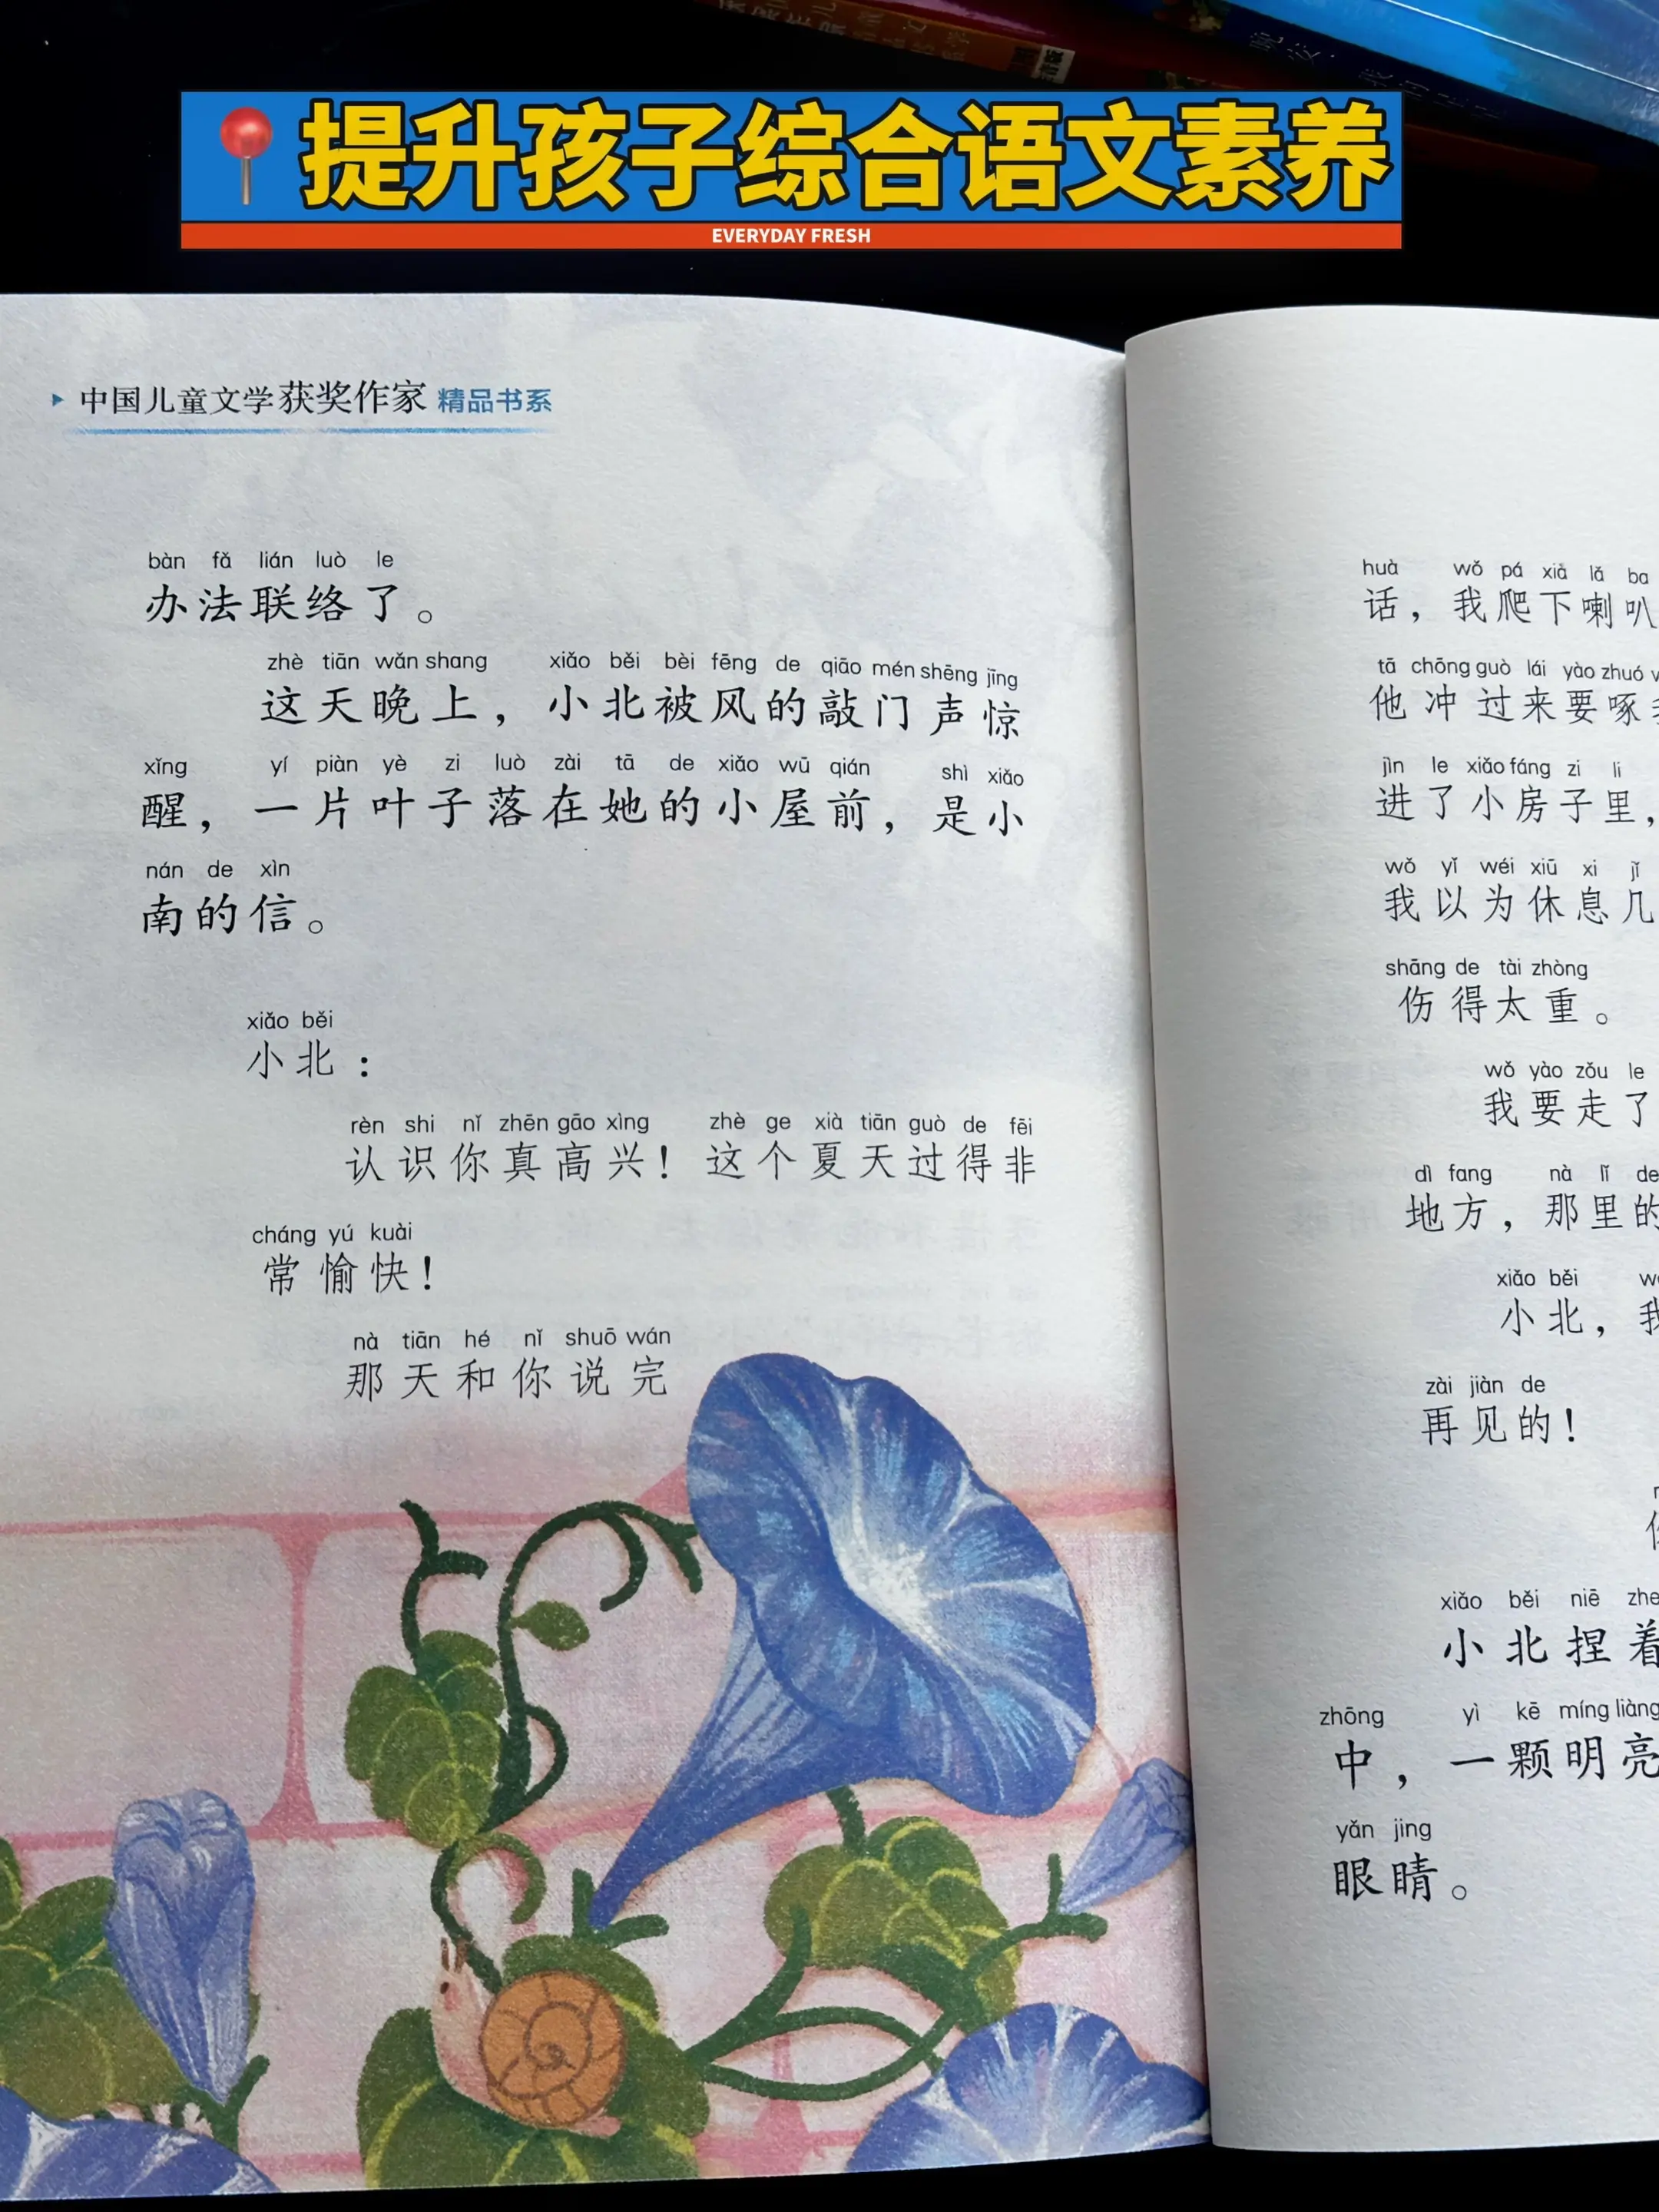 提升孩子综合语文素养
EVERYDAY FRESH
中国儿童文学获奖作家 精品书系
bàn fǎ lián luò le
办法联络了。
zhè tiān wǎn shang xiǎo běi bèi fēng de qiāo mén shēng jīng
这天晚上，小北被风的敲门声惊
xǐng yí piàn yè zi luò zài tā de xiǎo wū qián shì xiǎo
醒，一片叶子落在她的小屋前，是小
nán de xìn
南的信。
xiǎo běi
小北：
rèn shi nǐ zhēn gāo xìng zhè ge xià tiān guò de fēi
认识你真高兴！这个夏天过得非
cháng yú kuài
常愉快！
nà tiān hé nǐ shuō wán
那天和你说完
huà wǒ pá xià lǎ ba
话，我爬下喇叭
tā chōng guò lái yào zhuó
他冲过来要啄
jìn le xiǎo fáng zi li
进了小房子里，
wǒ yǐ wéi xiū xi jǐ
我以为休息几
shāng de tài zhòng
伤得太重。
wǒ yào zǒu le
我要走了
dì fang nà lǐ de
地方，那里的
xiǎo běi
小北，我
zài jiàn de
再见的！
xiǎo běi niē zhe
小北捏着
zhōng yì kē míng liàng
中，一颗明亮
yǎn jing
眼睛。